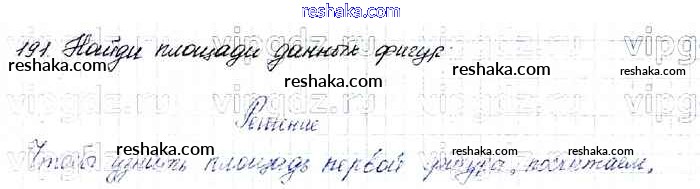 191. Найди площади данных фигур.
Решение
Чтобы узнать площадь первой фигуры, посчитаем,
reshaka.com
reshaka.com reshaka.com reshaka.com
reshaka.com reshaka.com
reshaka.com reshaka.com reshaka.com
vipgdz.ru